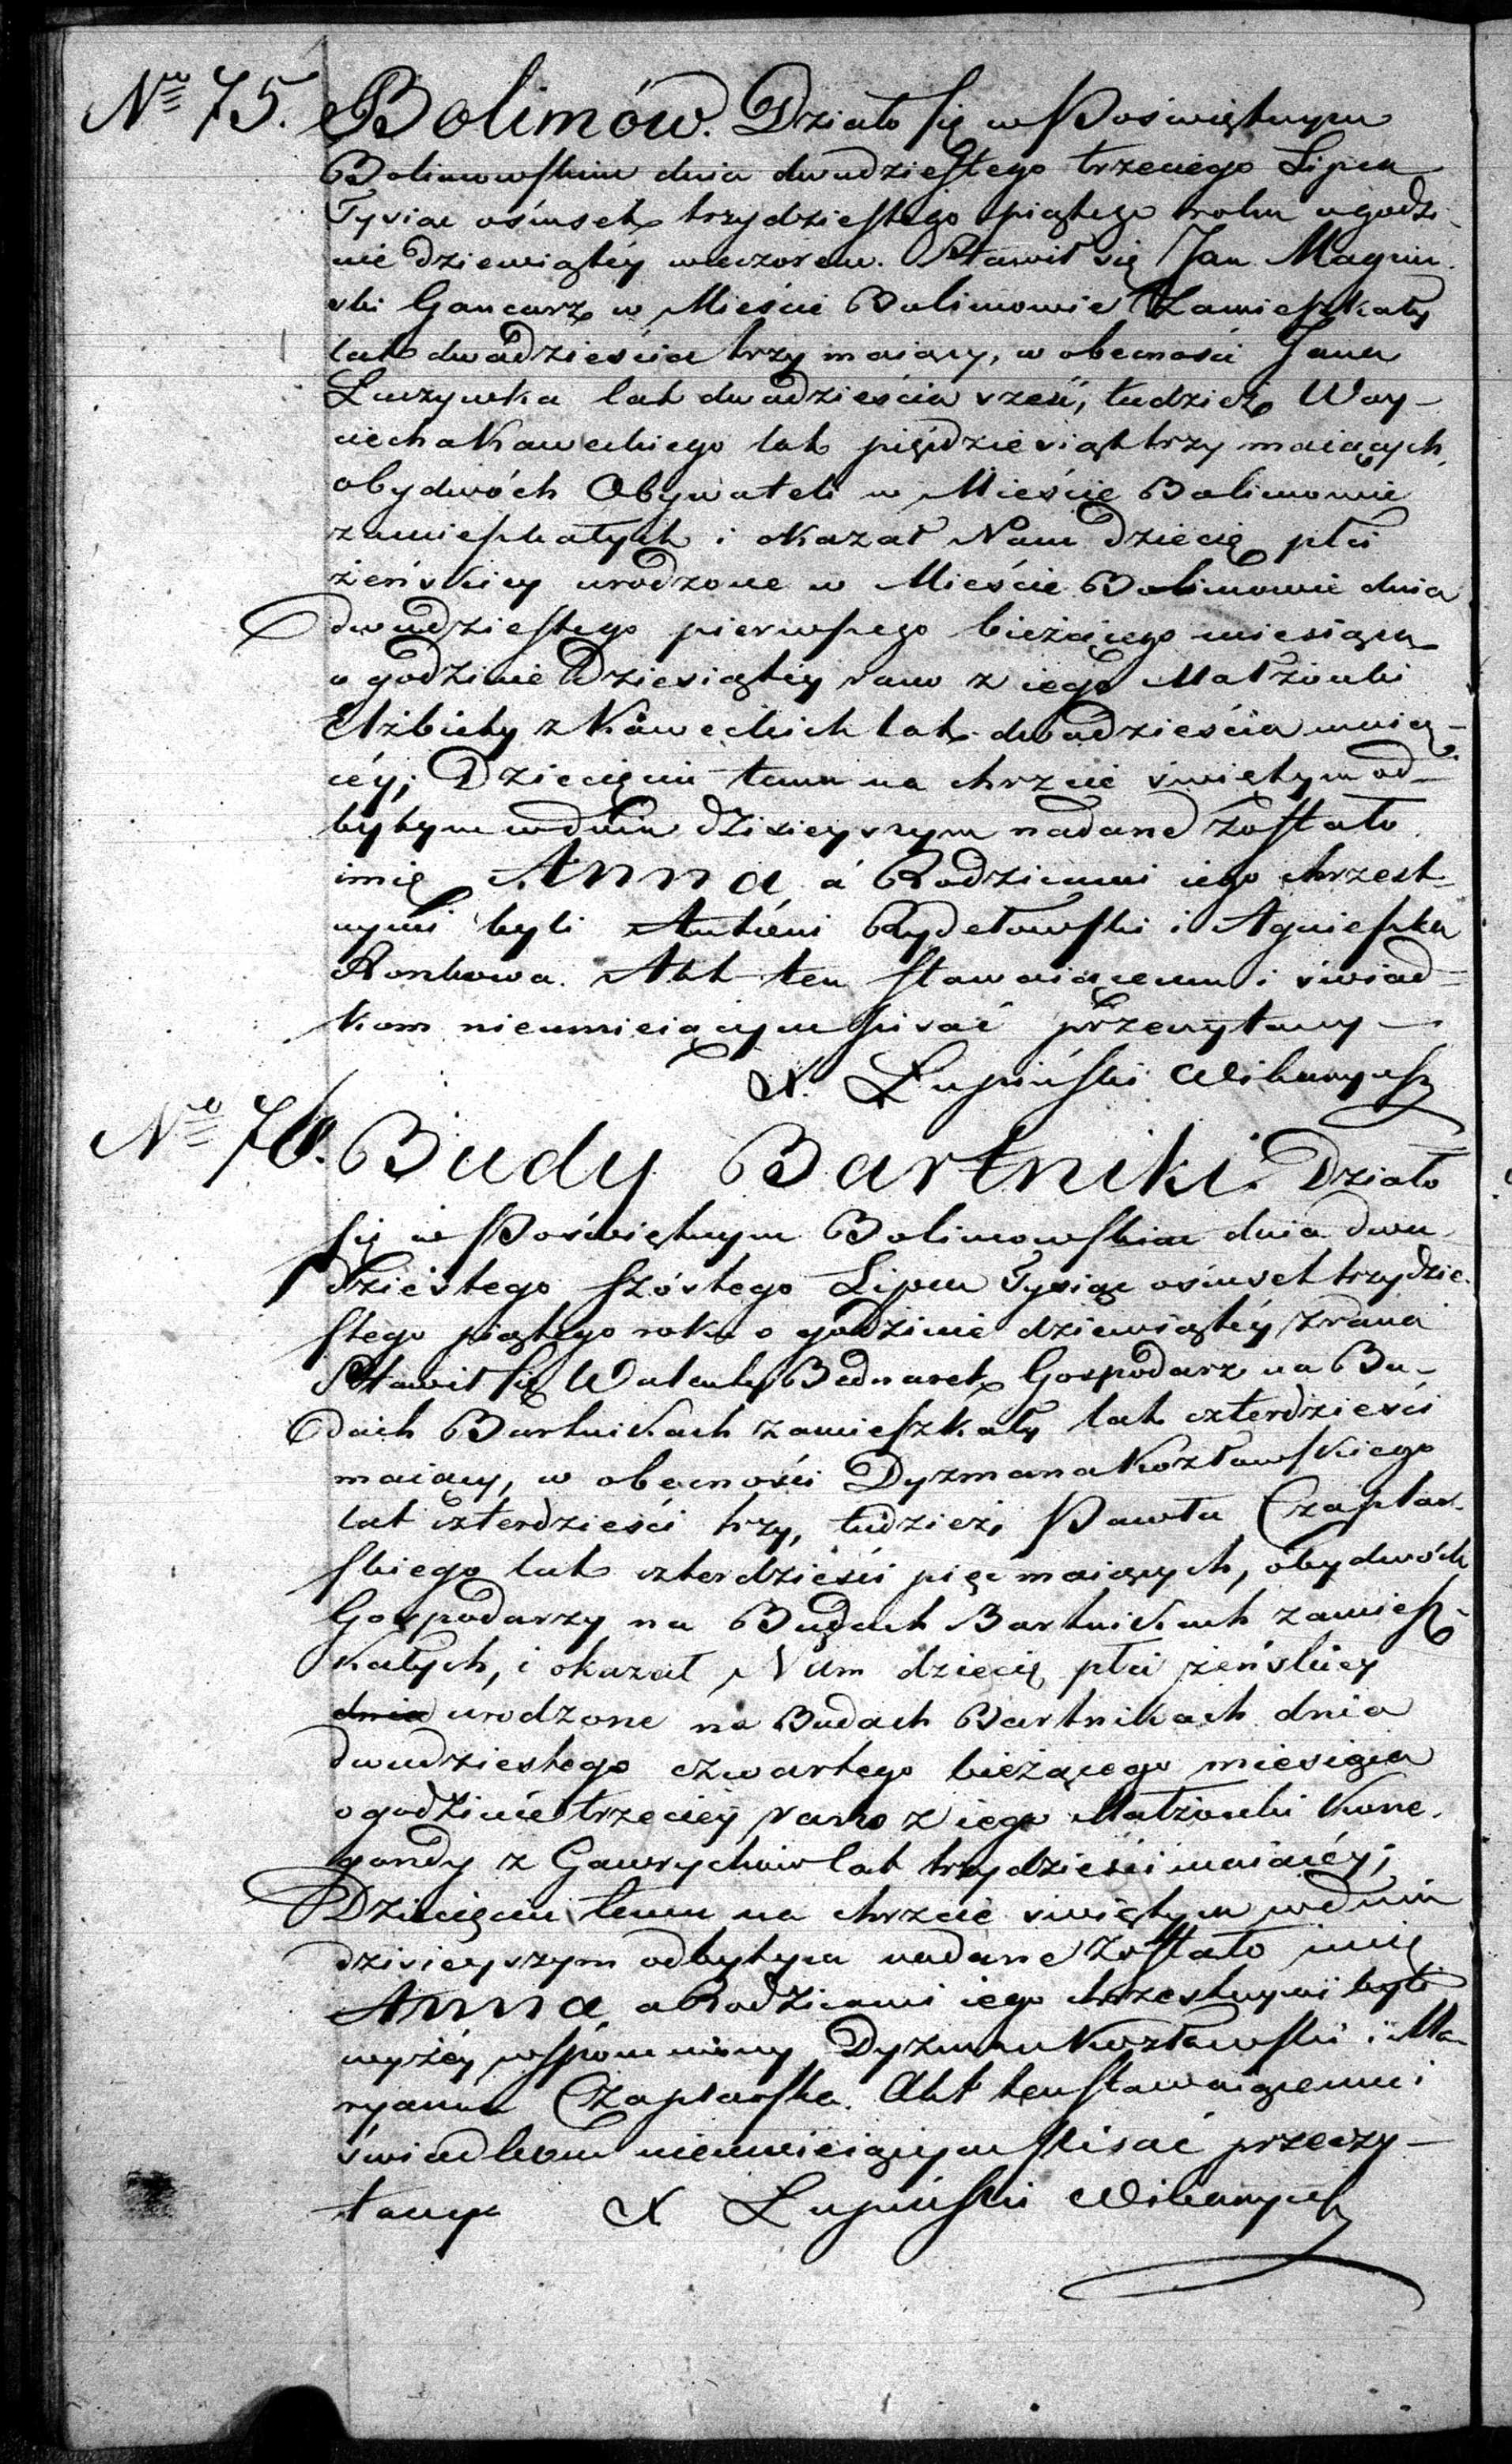 Nro 75. Bolimów. Działo się w Poświętnym
Bolimowskim dnia dwudziestego trzeciego Lipca
Tysiąc ośmset trzydziestego piątego roku o godzi-
nie dziewiątéy wieczorem. Stawił się Jan Magin-
ski Gancarz w Mieście Bolimowie Zamieszkały
lat dwadzieścia trzy maiący, w obecności Jana
Luzynka lat dwadzieścia sześć, tudzież Woy-
ciecha Kaweckiego lat pięćdziesiąt trzy maiących,
obydwóch Obywateli w Mieście Bolimowie
zamieszkałych i okazał Nam dziecię płci
żeńskiey urodzone w Mieście Bolimowie dnia
dwudziestego pierwszego bieżącego miesiąca
o godzinie Dziesiątéy rano z iego Małżonki
Elżbiety z Kaweckich lat dwadzieścia maią-
céy; Dziecięciu temu na chrzcie świętym od-
bytym w dniu dzisieyszym nadane zostało
imię Anna á Rodzicami iego chrzest-
nymi byli Antoni Rydełowski i Agnieszka
Ronkowa. Akt ten stawaiącemu i świad-
kom nieumieiącym pisać przeczytany —
X. Łupiński Wikaryusz
Nro 76. Budy Bartniki. Działo
się w Poświętnym Bolimowskim dnia dwu
dziestego szóstego Lipca Tysiąc ośmset trzydzie-
stego piątego roku o godzinie dziewiątéy zrana
Stawił się Walenty Bednarek Gospodarz na Bu-
dach Bartnikach zamieszkały lat czterdzieści
maiący, w obecności Dyzmana Kozłowskiego
lat czterdzieści trzy, tudzież Pawła Czaplar-
skiego lat czterdzieści pięć maiących, obydwóch
Gospodarzy na Budach Bartnikach zamiesz-
kałych, i okazał Nam dziecię płci żeńskiey
dnia urodzone na Budach Bartnikach dnia
dwudziestego czwartego bieżącego miesiąca
o godzinie trzeciéy rano z iego Małżonki Kune-
gondy z Gawrychów lat trzydzieści maiącéy;
Dziecięciu temu na chrzcie świętym w dniu
dzisieyszym odbytym nadane zostało imię
Anna a Rodzicami iego chrzestnymi byli
wyżéy wspomniony Dyzman Kozłowski i Ma-
ryanna Czaplarska. Akt ten stawaiącemu i
świadkom nieumieiącym pisać przeczy-
tany X Łupiński Wikaryusz